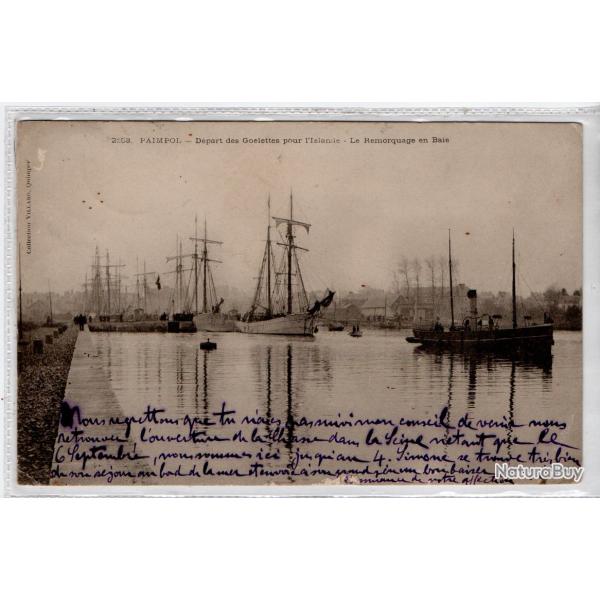 2253. PAIMPOL — Départ des Goelettes pour l'Islande - Le Remorquage en Baie
Collection VILLARD, Quimper
Nous regrettons que tu n'aies pas suivi mon conseil de venir nous
retrouver, l'ouverture de la chasse dans la Seine n'étant que le
6 Septembre, nous sommes ici jusqu'au 4. Simone se trouve très bien
de son séjour au bord de la mer et envoie à son grand un bon baiser
de votre affection
NaturaBuy